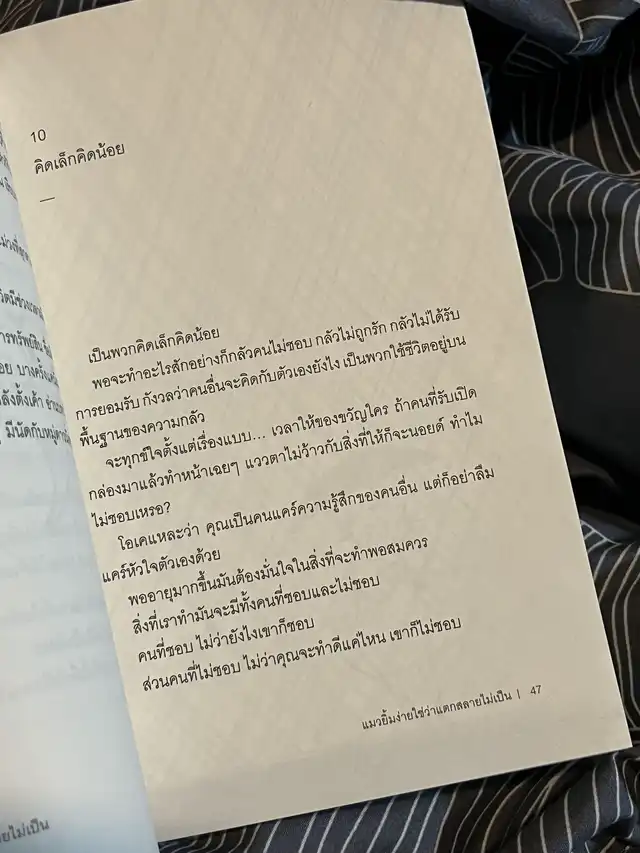 10
คิดเล็กคิดน้อย
—
เป็นพวกคิดเล็กคิดน้อย
พอจะทำอะไรสักอย่างก็กลัวคนไม่ชอบ กลัวไม่ถูกรัก กลัวไม่ได้รับ
การยอมรับ กังวลว่าคนอื่นจะคิดกับตัวเองยังไง เป็นพวกใช้ชีวิตอยู่บน
พื้นฐานของความกลัว
จะทุกข์ใจตั้งแต่เรื่องแบบ... เวลาให้ของขวัญใคร ถ้าคนที่รับเปิด
กล่องมาแล้วทำหน้าเฉยๆ แววตาไม่ว้าวกับสิ่งที่ให้ก็จะนอยด์ ทำไม
ไม่ชอบเหรอ?
โอเคแหละว่า คุณเป็นคนแคร์ความรู้สึกของคนอื่น แต่ก็อย่าลืม
แคร์หัวใจตัวเองด้วย
พออายุมากขึ้นมันต้องมั่นใจในสิ่งที่จะทำพอสมควร
สิ่งที่เราทำมันจะมีทั้งคนที่ชอบและไม่ชอบ
คนที่ชอบ ไม่ว่ายังไงเขาก็ชอบ
ส่วนคนที่ไม่ชอบ ไม่ว่าคุณจะทำดีแค่ไหน เขาก็ไม่ชอบ
แมวยิ้มง่ายใช่ว่าแตกสลายไม่เป็น | 47